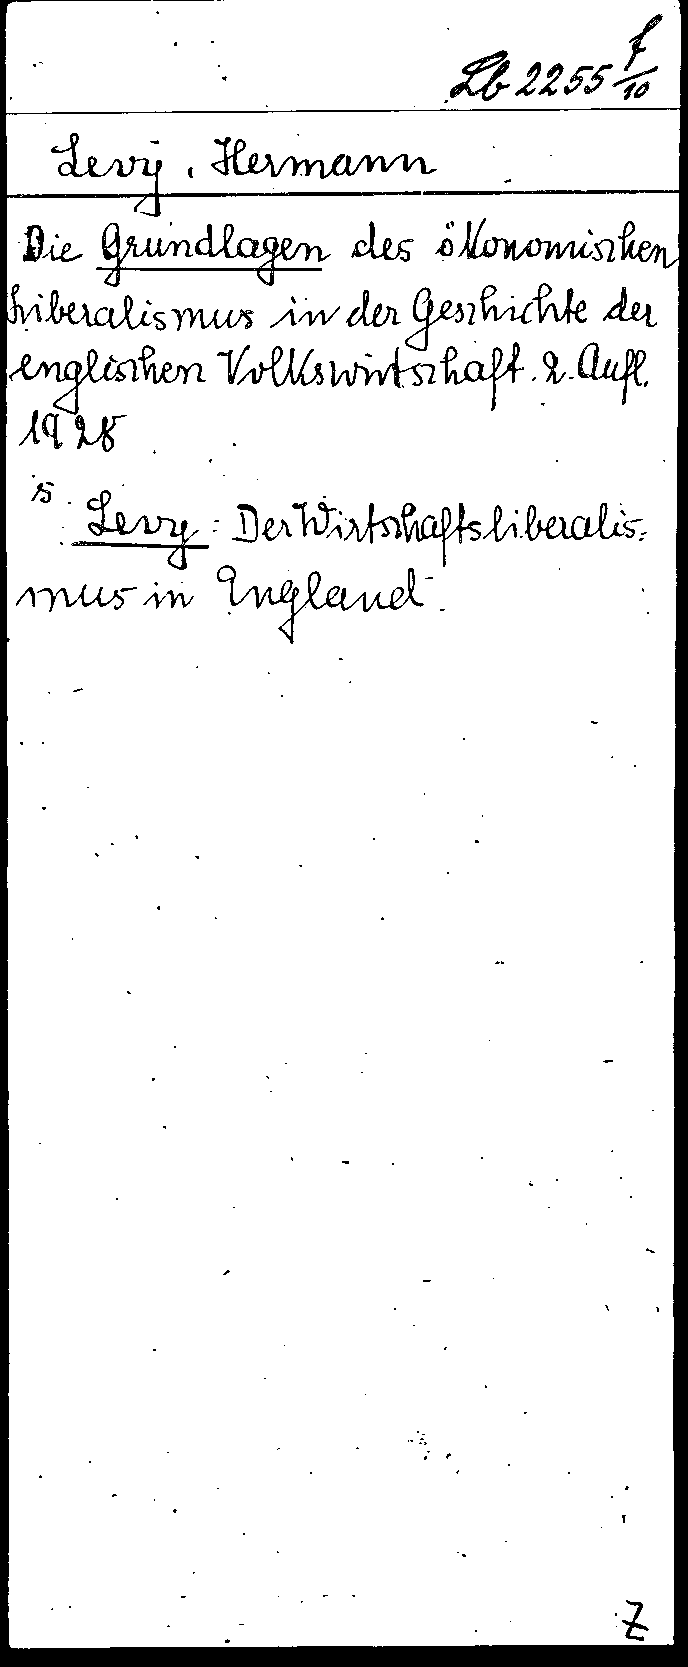 Lb 2255 f/10
Levy, Hermann
Die Grundlagen des ökonomischen
Liberalismus in der Geschichte der
englischen Volkswirtschaft. 2. Aufl.
1928
s. Levy: Der Wirtschaftsliberalis-
mus in England.
Z